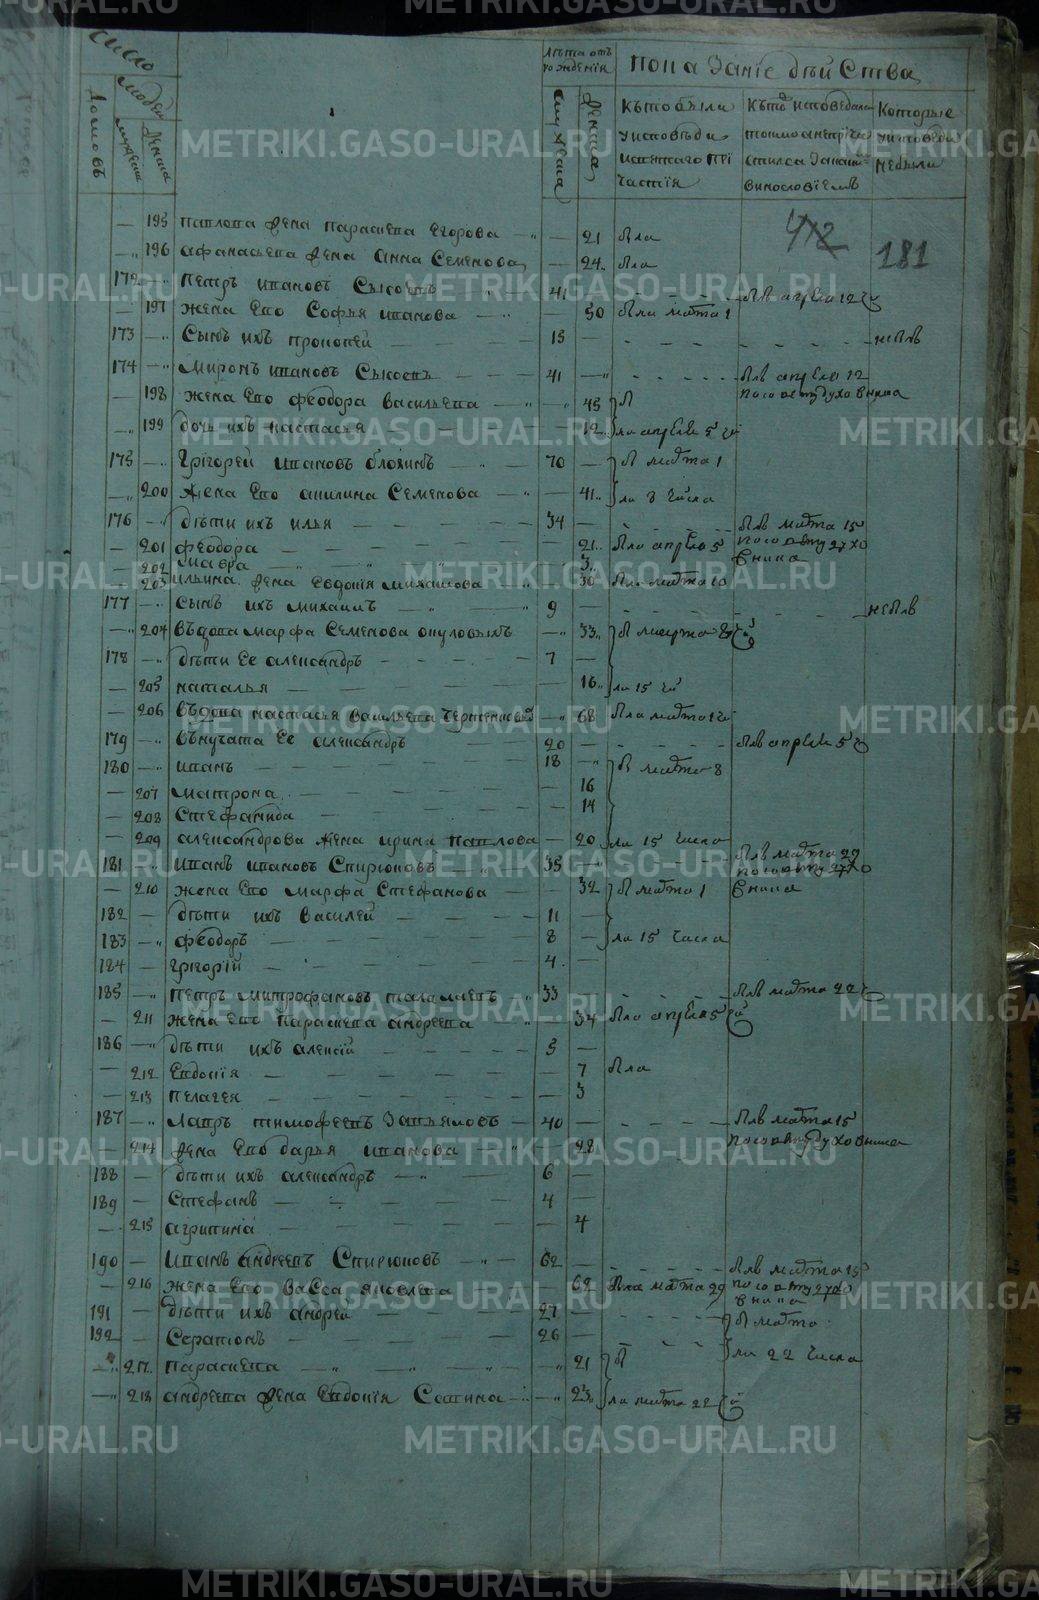 число
людей
Домовъ
мужеска
Женска
Лѣта отъ рожденія
Мужеска
Женска
Показаніе дѣйства
Кто были у исповѣди и святаго причастія
Кто исповѣдался токмо а не причастился за какимъ винословіемъ
Которые у исповѣди не были
472
181
— 195 павлова жена параскева Егорова — 21 Была
— 196 афанасьева жена анна Семенова — 24 Была
172 — петръ ивановъ Сысоевъ 41 - - - Былъ апреля 12
— 197 жена Его Софья иванова — 50 Была марта 1
173 — Сынъ ихъ прокопей 15 — - - - не былъ
174 — миронъ ивановъ Сысоевъ 41 — - - - Былъ апреля 12
по совету духовника
— 198 жена Его феодора васильева — 45 Бы
— 199 дочь ихъ настасья — 12 ли апреля 5
175 — Григорей ивановъ блохинъ 70 — Бы марта 1
— 200 жена Его акилина Семенова — 41 ли 8 числа
176 — дѣти ихъ илья 34 — - - - Былъ марта 15
— 201 феодора — 21 Была апреля 5 по совету духо
— 202 мавра — 3 вника
— 203 ильина жена Евдокія михайлова — 30 Была марта 10
177 — сынъ ихъ михаилъ 9 — - - - не былъ
— 204 въдова марфа Семенова окуловыхъ — 33 Бы марта 8
178 — дѣти Ее александръ 7 —
— 205 наталья — 16 ли 15
— 206 въдова настасья васильева — 68 Была марта
179 — вънучата Ее александръ 20 — - - - Былъ апреля 5
180 — иванъ 18 — Бы марта 8
— 207 матрона 16
— 208 Стефанида — 14
— 209 александрова жена ирина павлова — 20 ли 15 числа
181 — иванъ ивановъ Спирюковъ 35 — - - - Былъ марта 29
по совету духо
— 210 жена Его марфа Стефанова — 32 Бы марта 1 вника
182 — дѣти ихъ василей 11 —
183 — феодоръ 8 — ли 15 числа
184 — григорій 4 —
185 — петръ митрофановъ талалаевъ 33 - - - Былъ марта 22
— 211 жена Его параскева андреева — 34 Была апреля 5
186 — дѣти ихъ алексій 5 —
— 212 Евдокія — 7 Была
— 213 пелагея — 3
187 — лавръ тимофеевъ Завьяловъ 40 — - - - Былъ марта 15
— 214 жена Его дарья иванова — 28 по совету духовника
188 — дѣти ихъ александръ 6 —
189 — Стефанъ 4 —
— 215 агрипина — 4
190 — иванъ андреевъ Спирюковъ 62 — - - - Былъ марта 15
— 216 жена Его васса яковлева 62 Была марта 29 по совету духо
вника
191 — дѣти ихъ андрей 27 — - - - Бы марта
192 — Серапионъ 26 — - - - ли 22 числа
— 217 параскева — 21 Бы
— 218 андреева жена Евдокія — 23 ли марта 22